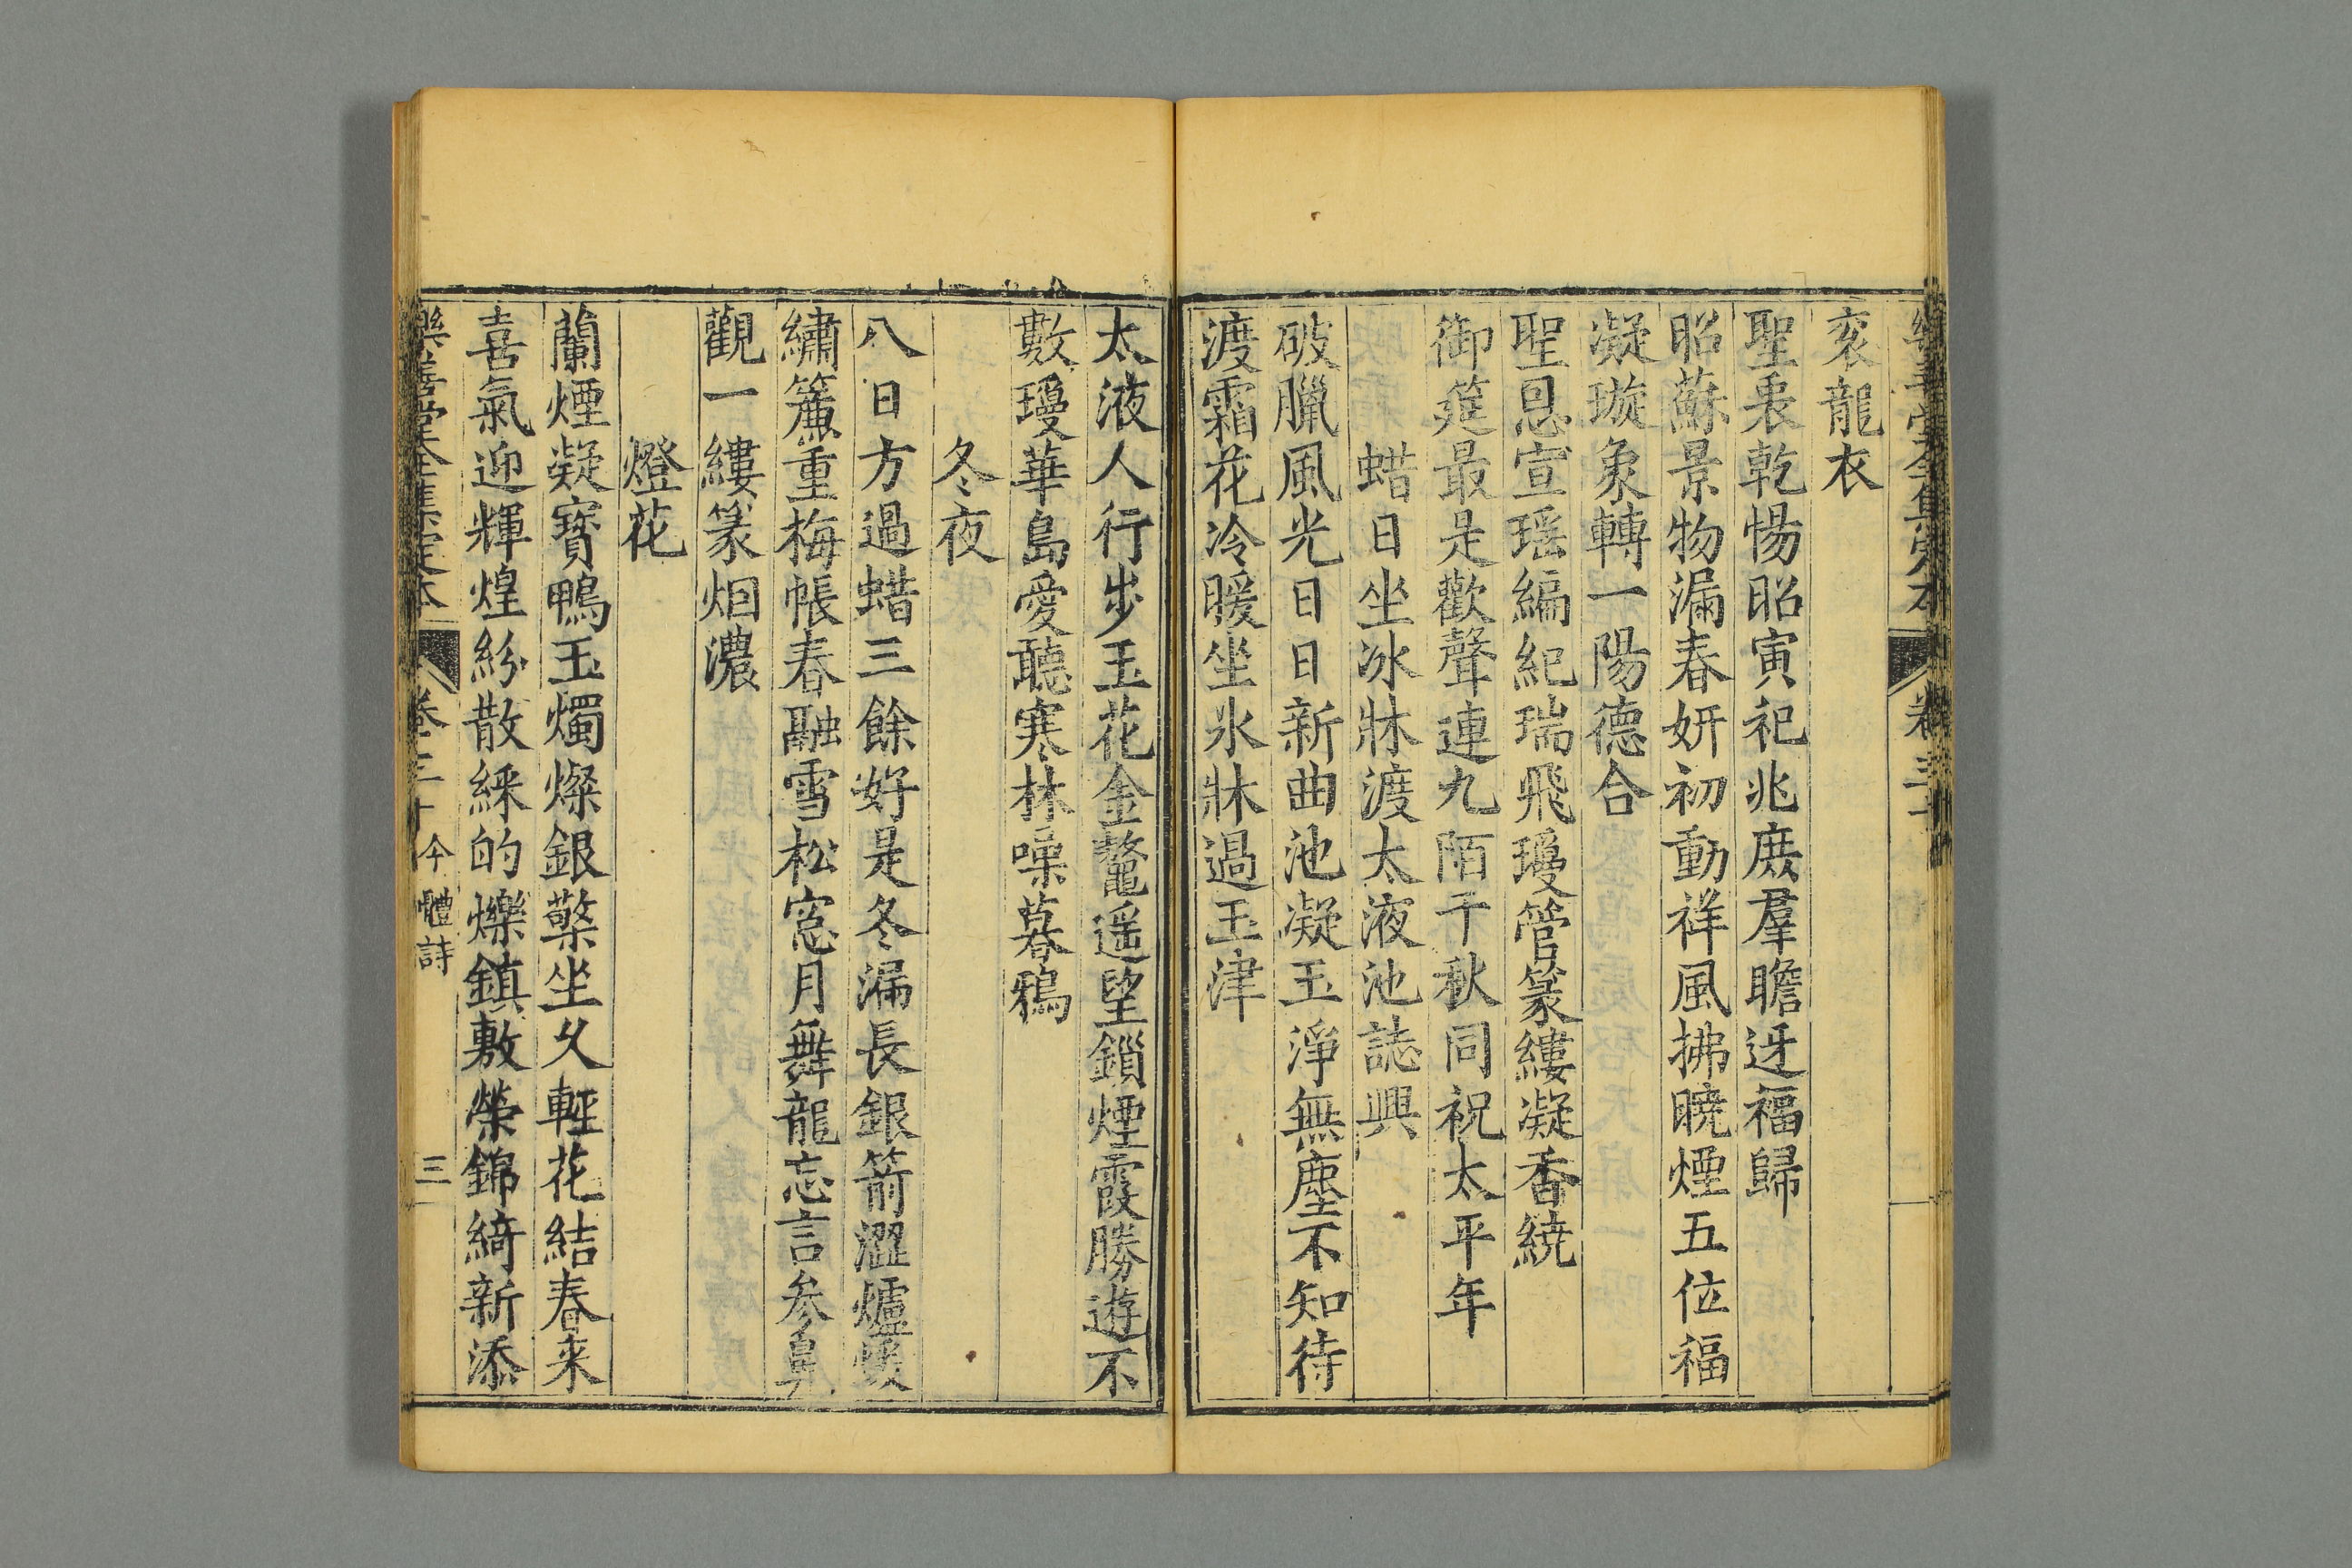 樂善堂全集定本 卷三十
袞龍衣
聖衷乾惕昭寅祀兆庶羣瞻迓福歸
昭蘇景物漏春妍初動祥風拂曉煙五位福
凝璇象轉一陽德合
聖恩宣瑶編紀瑞飛璦管篆縷凝香繞
御筵最是歡聲連九陌千秋同祝太平年
蜡日坐冰牀渡太液池誌興
破臘風光日日新曲池凝玉淨無塵不知待
渡霜花冷暖坐氷牀過玉津
太液人行步玉花金鼇遥望鎖煙霞勝遊不
數璦華島愛聽寒林噪暮鴉
冬夜
八日方過蜡三餘好是冬漏長銀箭澀爐燠
繡簾重梅帳春融雪松窓月舞龍忘言参鼻
觀一縷篆烟濃
燈花
蘭煙凝寳鴨玉燭燦銀檠坐久輕花結春来
喜氣迎輝煌紛散綵的爍鎮敷榮錦綺新添
樂善堂全集定本 卷三十 今體詩 三